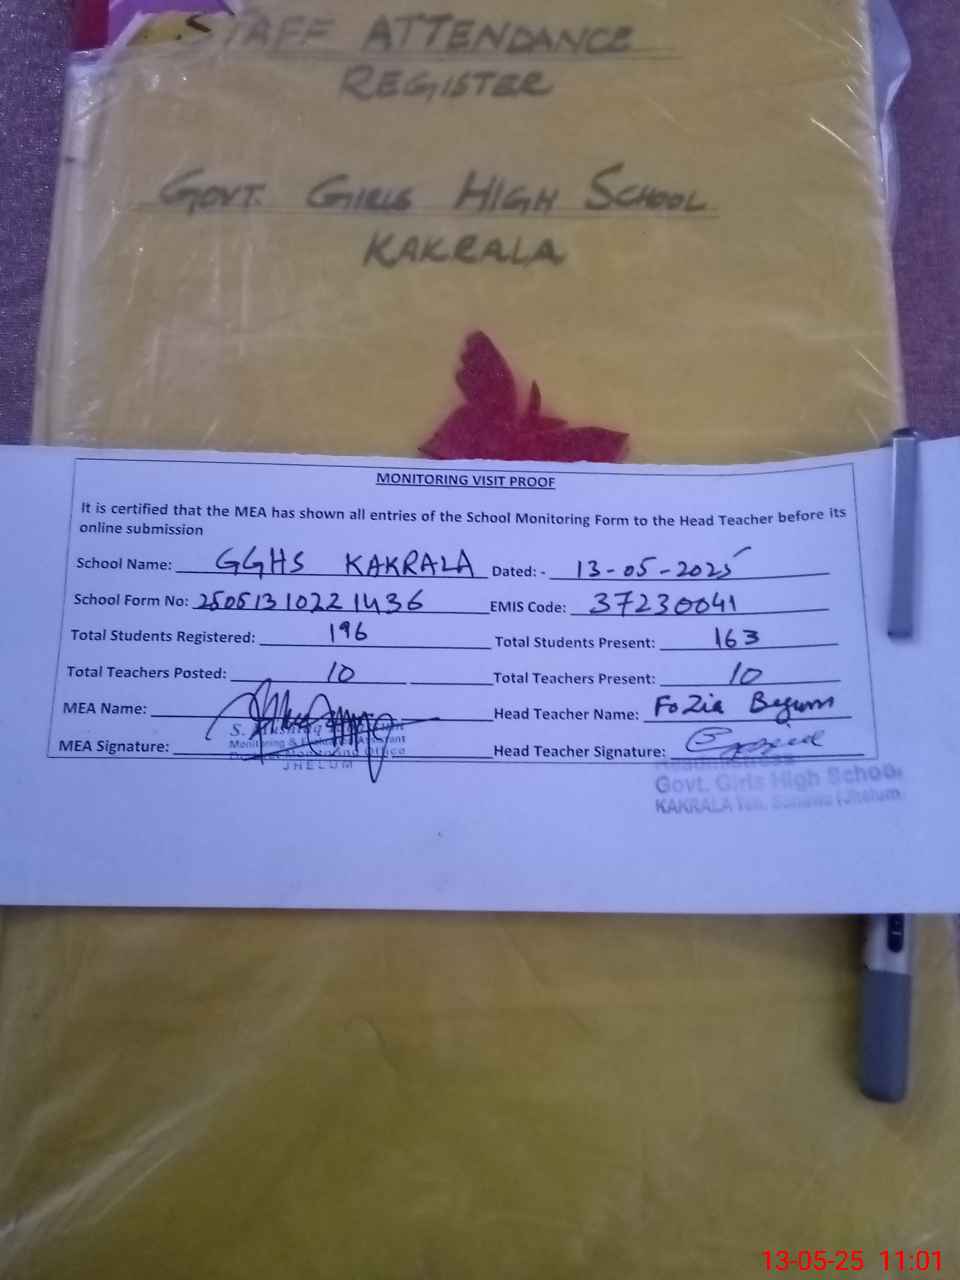 STAFF ATTENDANCE
REGISTER
GOVT. GIRLS HIGH SCHOOL
KAKRALA
MONITORING VISIT PROOF
It is certified that the MEA has shown all entries of the School Monitoring Form to the Head Teacher before its
online submission
School Name: GGHS KAKRALA Dated: - 13-05-2025
School Form No: 25051310221436 EMIS Code: 37230041
Total Students Registered: 196 Total Students Present: 163
Total Teachers Posted: 10 Total Teachers Present: 10
MEA Name: Head Teacher Name: Fozia Begum
S.
Monitoring & Assistant
MEA Signature: Head Teacher Signature:
Monitoring Office
JHELUM
Headmistress
Govt. Girls High School
KAKRALA Teh. Sohawa (Jhelum)
13-05-25 11:01